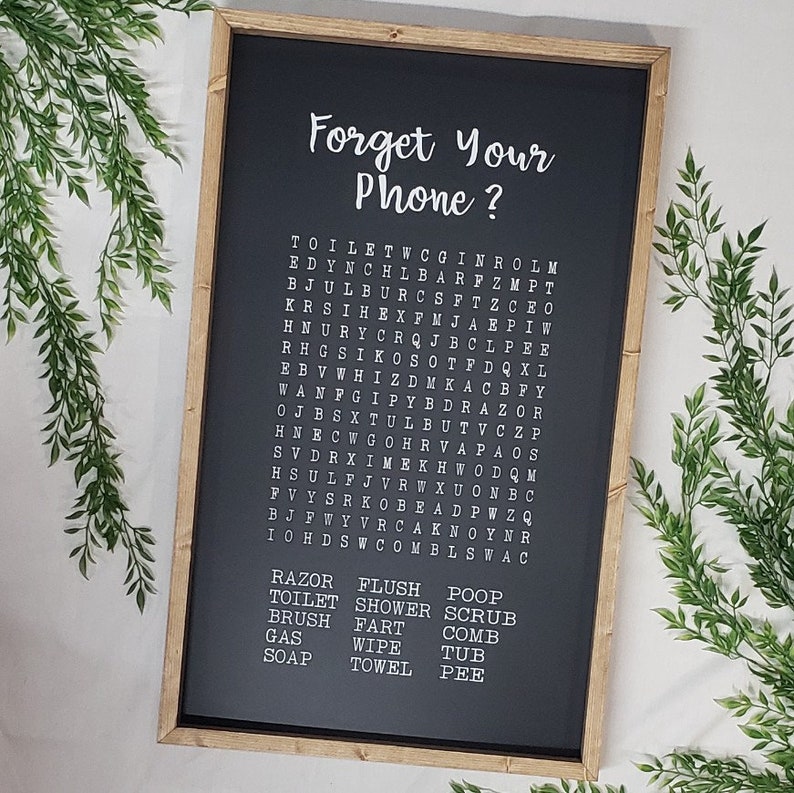 Forget Your
Phone?
T O I L E T W C G I N R O L M
E D Y N C H L B A R F Z M P T
B J U L B U R C S F T Z C E O
K R S I H E X F M J A E P I W
H N U R Y C R Q J B C L P E E
R H G S I K O S O T F D Q X L
E B V W H I Z D M K A C B F Y
W A N F G I P Y B D R A Z O R
O J B S X T U L B U T V C Z P
H N E C W G O H R V A P A O S
S V D R X I M E K H W O D Q M
H S U L F J V R W X U O N B C
F V Y S R K O B E A D P W Z Q
B J F W Y V R C A K N O Y N R
I O H D S W C O M B L S W A C
RAZOR FLUSH POOP
TOILET SHOWER SCRUB
BRUSH FART COMB
GAS WIPE TUB
SOAP TOWEL PEE